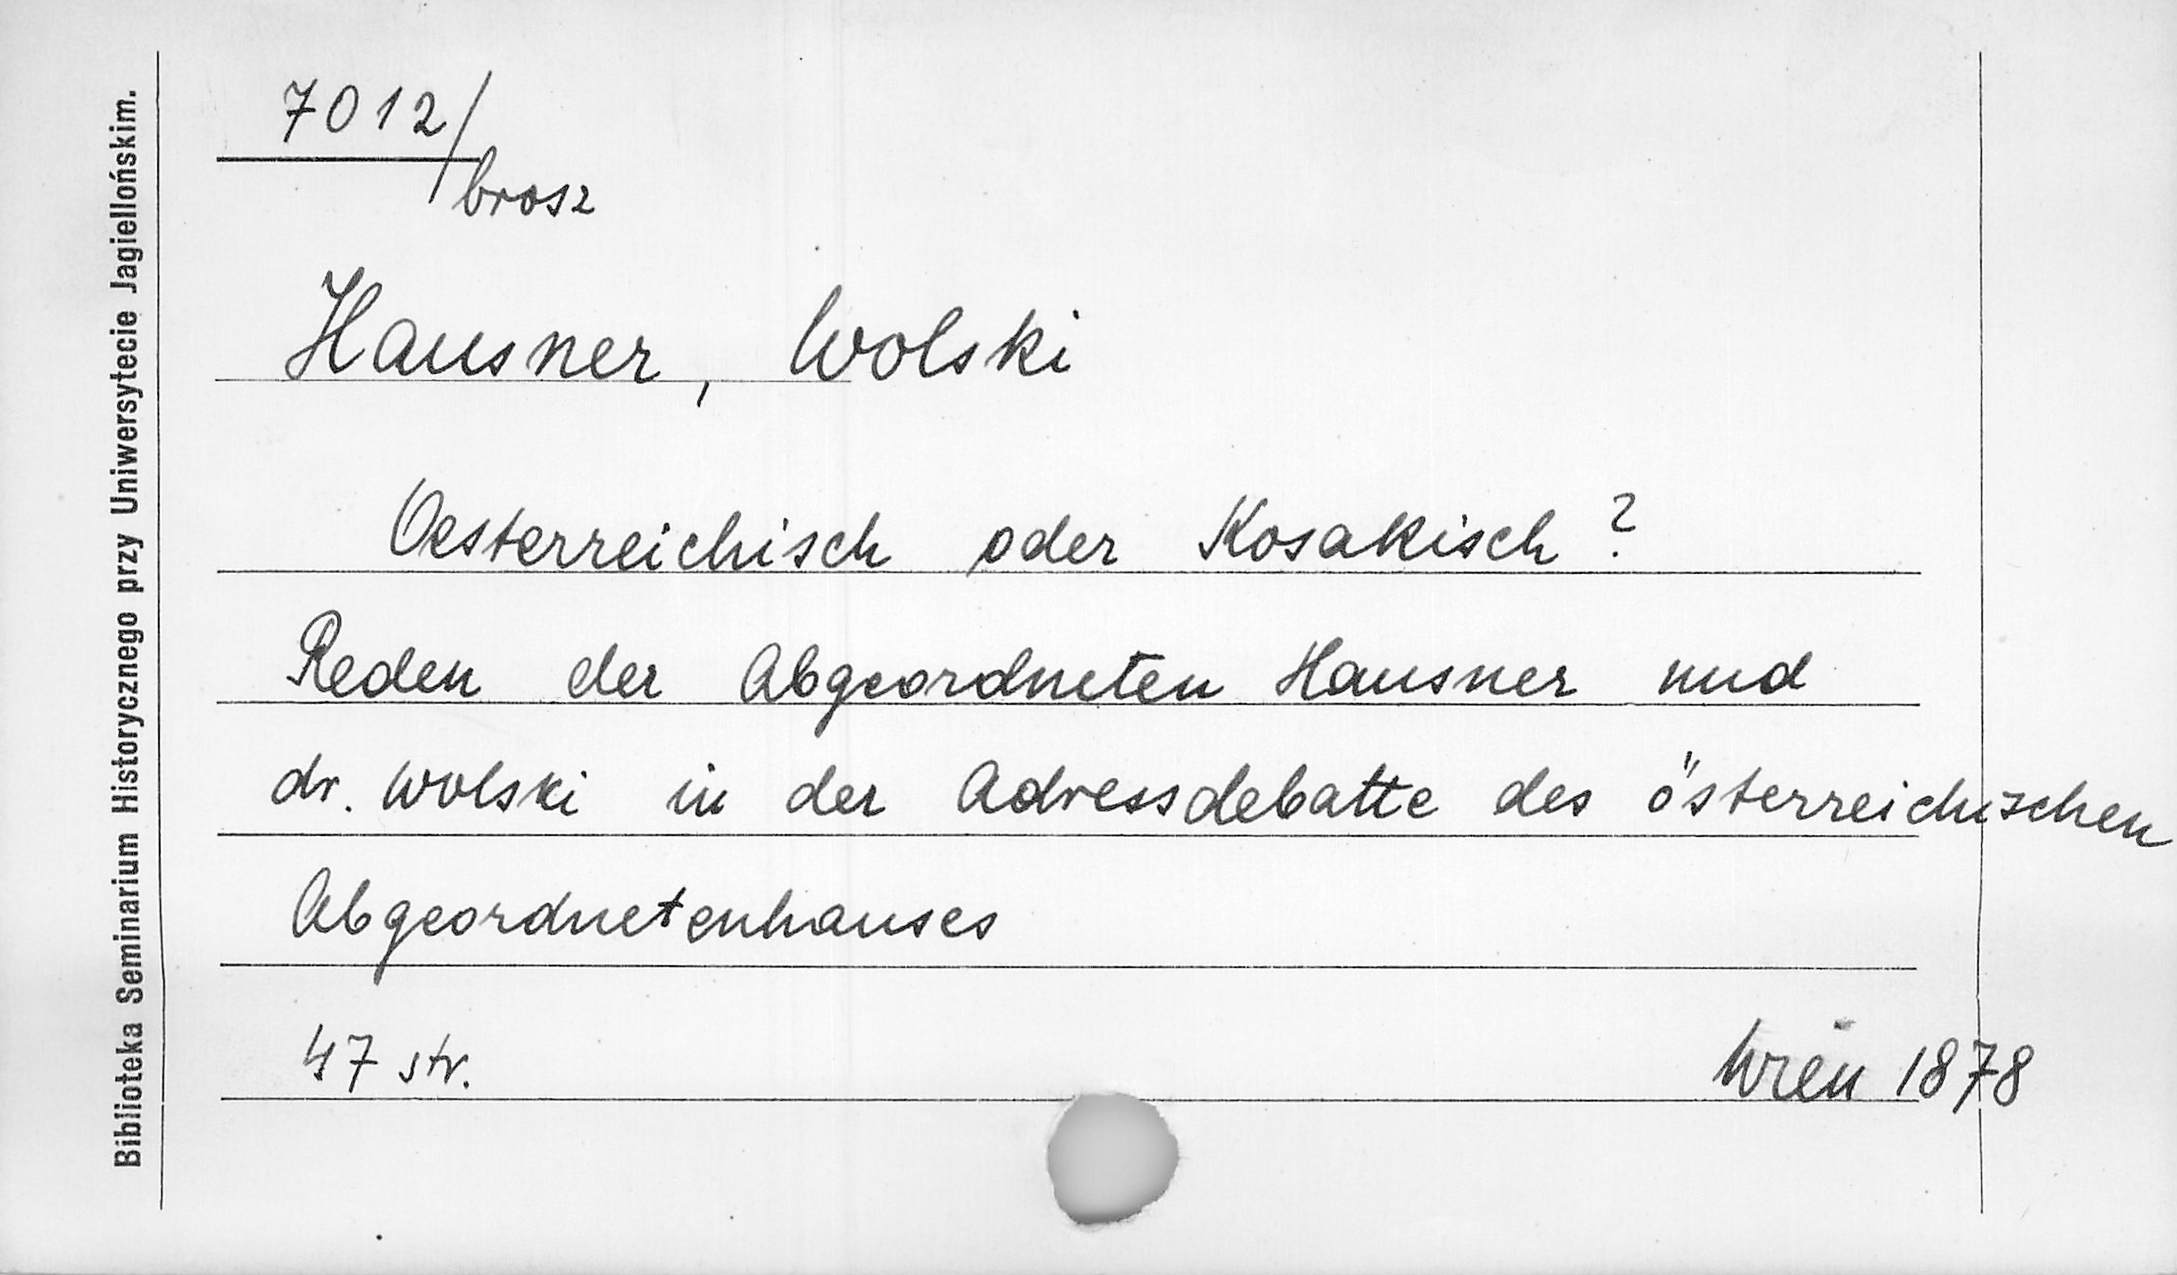 7012/brosz
Hausner, Wolski
Oesterreichisch oder Kosakisch?
Reden der Abgeordneten Hausner und
dr. Wolski in der Adressdebatte des österreichischen
Abgeordnetenhauses
47 str. Wien 1878
Biblioteka Seminarium Historycznego przy Uniwersytecie Jagiellońskim.